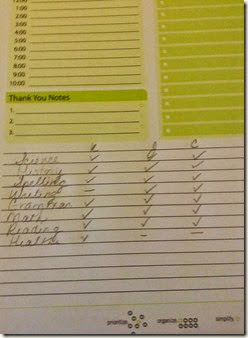 12:00
1:00
2:00
3:00
4:00
5:00
6:00
7:00
8:00
9:00
10:00
Thank You Notes
1.
2.
3.
C
Science ✓ ✓ ✓
History ✓ ✓ ✓
Spelling ✓ ✓ ✓
Writing – ✓ ✓
Grammar ✓ ✓ ✓
Math ✓ ✓ ✓
Reading ✓ ✓ ✓
Health ✓ – –
prioritize organize simplify